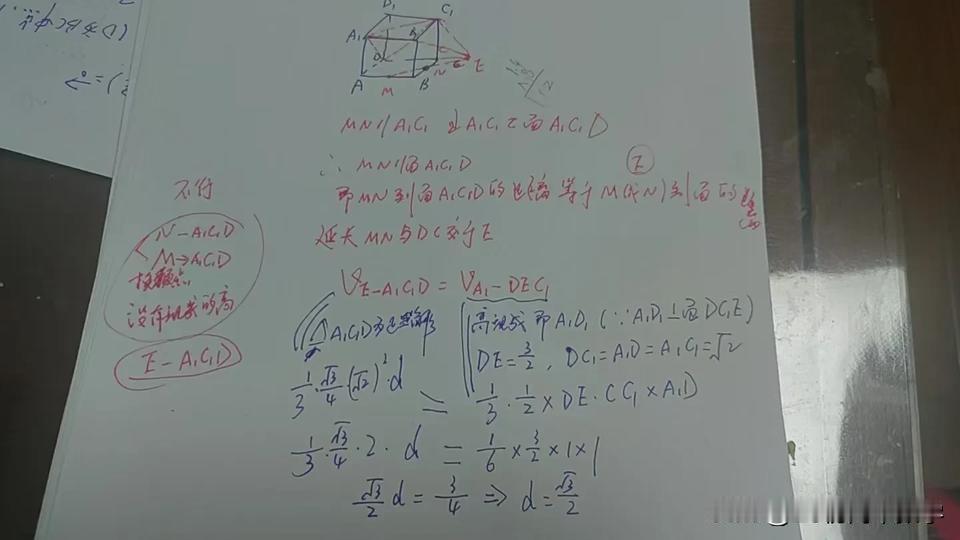 D₁ C₁
A₁ B₁
D C E
N
A M B
MN∥A₁C₁ 且A₁C₁⊂面A₁C₁D
∴ MN∥面A₁C₁D
即MN到面A₁C₁D的距离等于M(或N)到面的距离
E
延长MN与DC交于E
不行
N-A₁C₁D
M→A₁C₁D
换顶点
没有现成的高
E-A₁C₁D
V_{E-A₁C₁D} = V_{A₁-DEC₁}
△A₁C₁D为正三角形
高现成即A₁D₁ (∵A₁D₁⊥面DC₁E)
DE=3/2, DC₁=A₁D=A₁C₁=√2
1/3·√3/4(√2)²·d = 1/3·1/2×DE·CC₁×A₁D
1/3·√3/4·2·d = 1/6×3/2×1×1
√3/2 d = 3/4 ⇒ d=√3/2